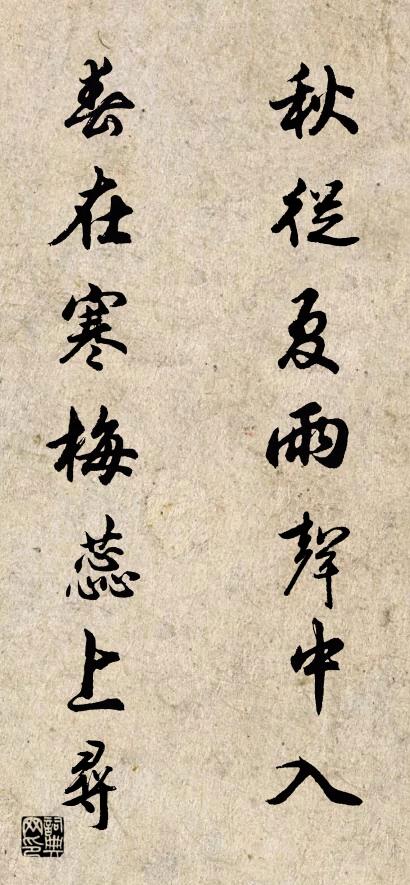 秋從夏雨聲中入
春在寒梅蕊上尋
詞典网印